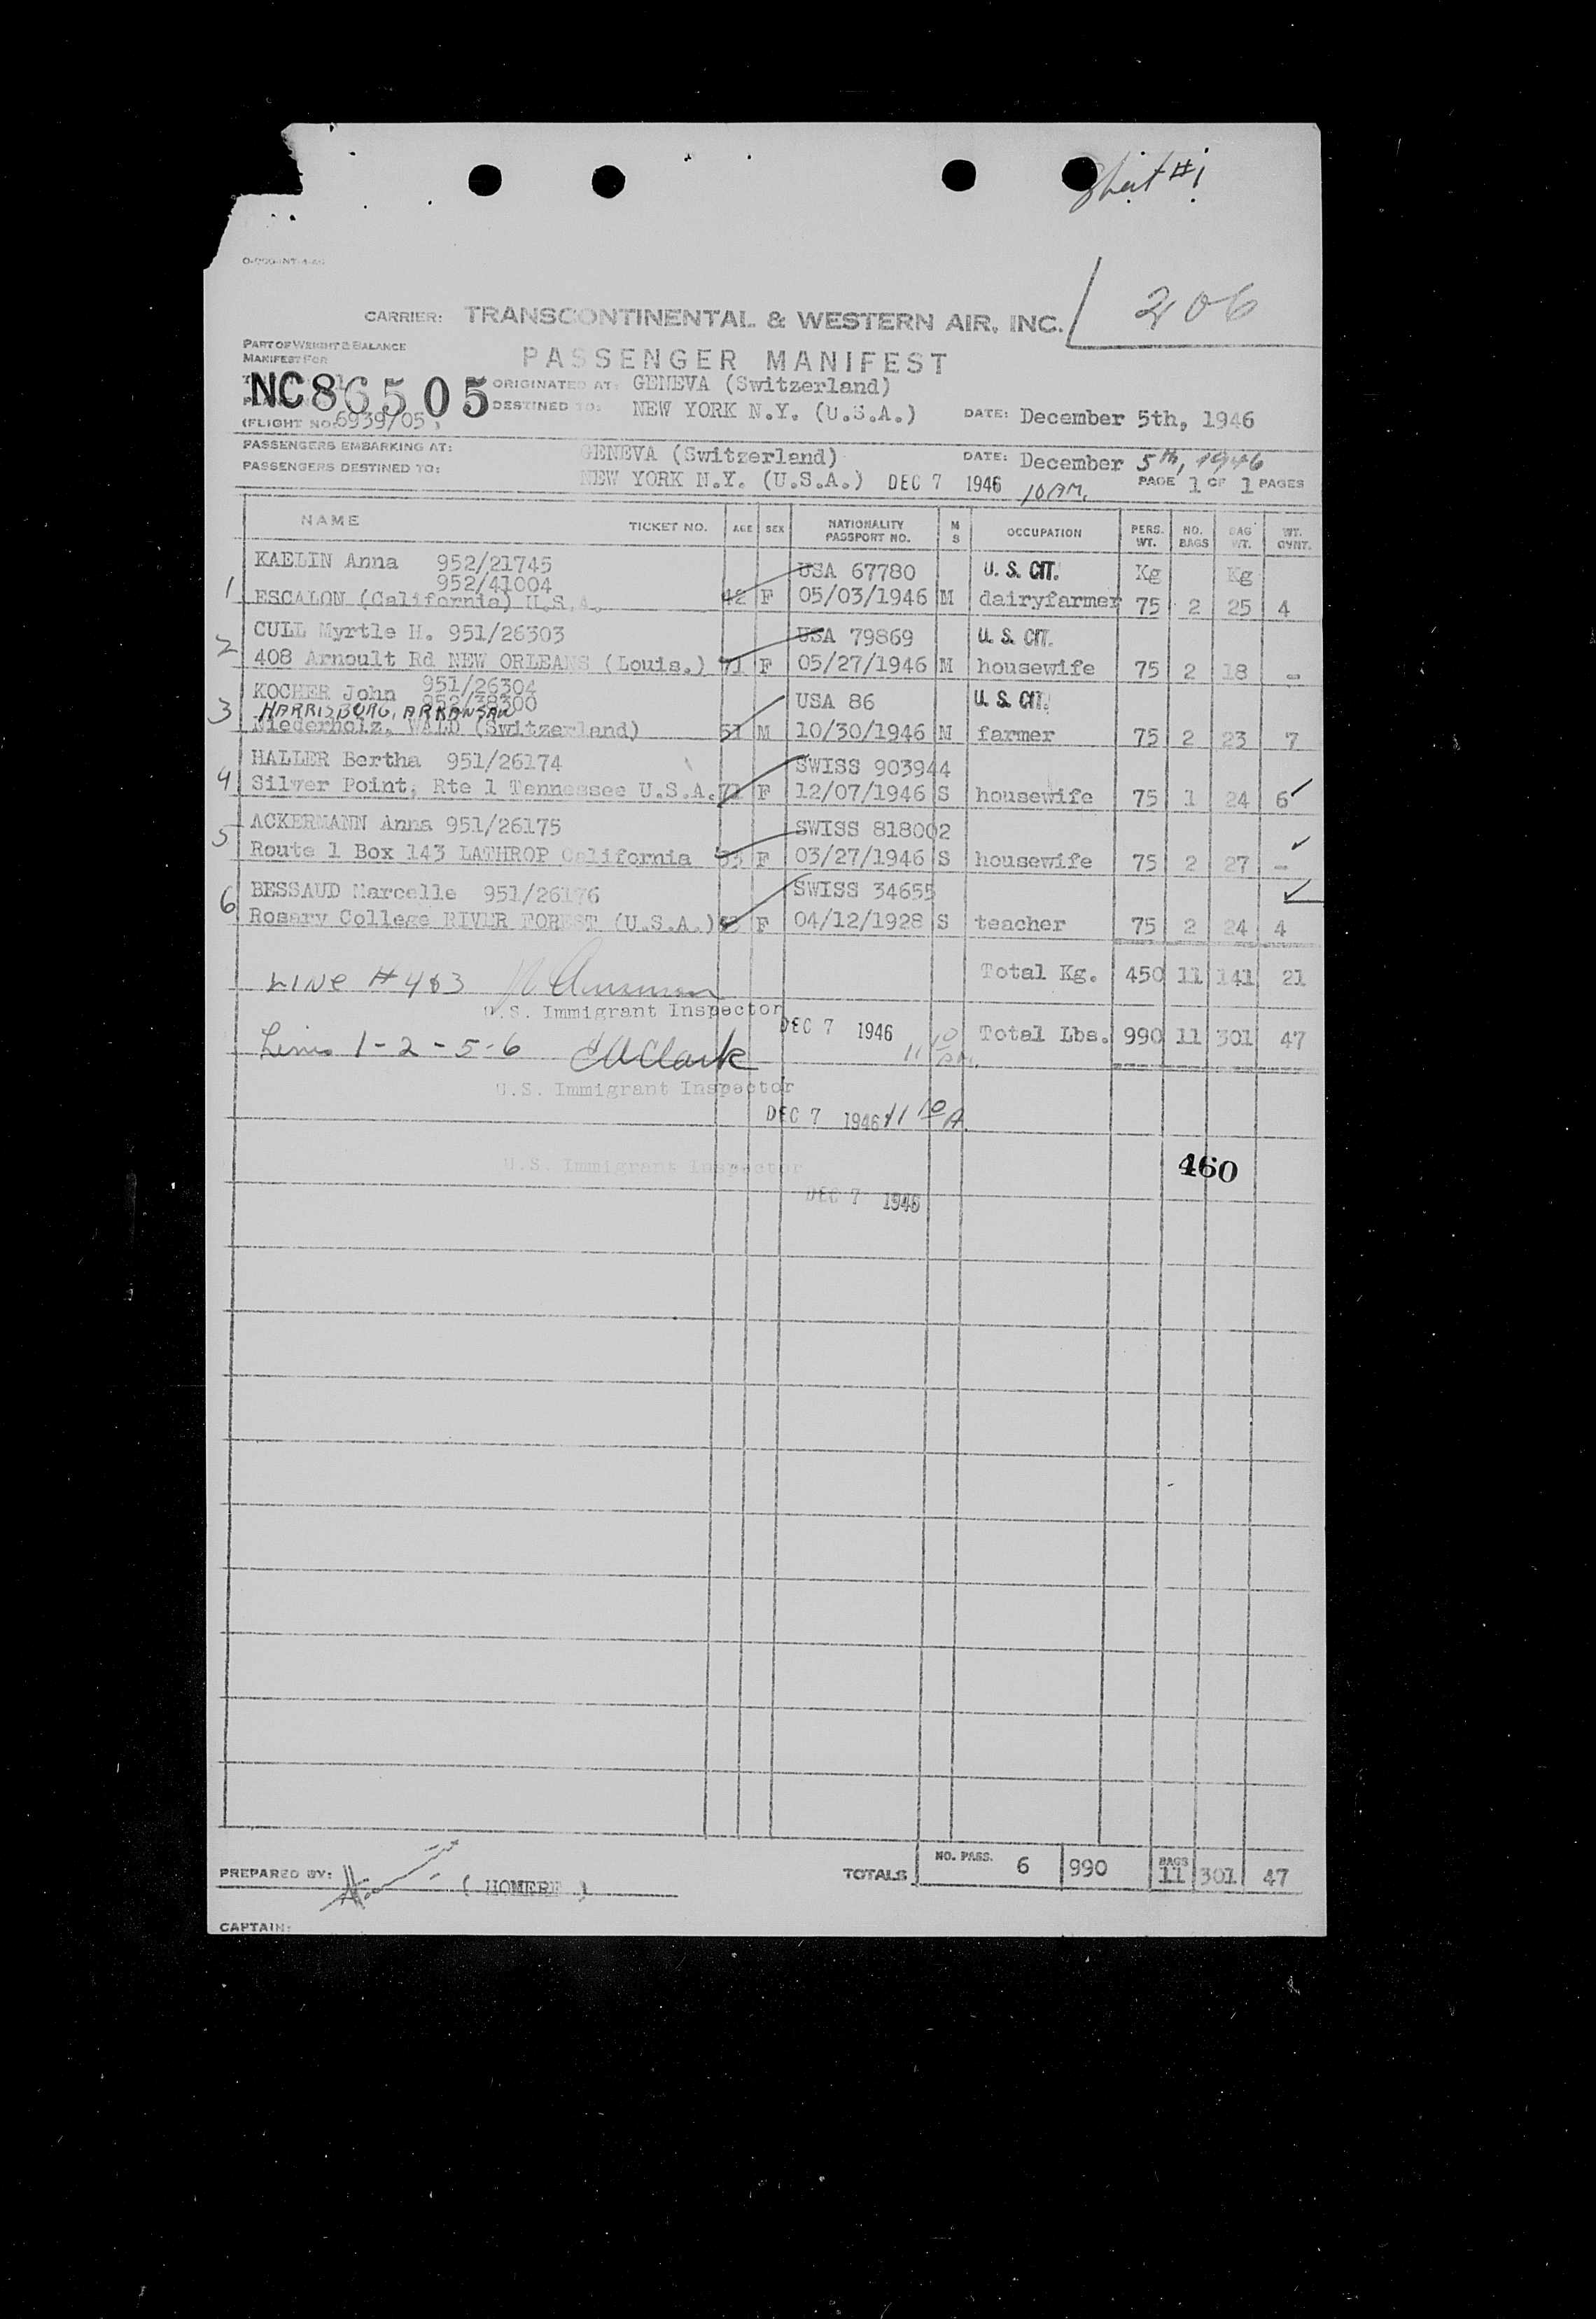 Sheet #1
206
CARRIER: TRANSCONTINENTAL & WESTERN AIR, INC.
PART OF WEIGHT & BALANCE
MANIFEST FOR
PASSENGER MANIFEST
NC86505
ORIGINATED AT: GENEVA (Switzerland)
DESTINED TO: NEW YORK N.Y. (U.S.A.) DATE: December 5th, 1946
(FLIGHT NO. 6939/05)
PASSENGERS EMBARKING AT: GENEVA (Switzerland) DATE: December 5th, 1946
PASSENGERS DESTINED TO: NEW YORK N.Y. (U.S.A.) DEC 7 1946 10 AM. PAGE 1 OF 1 PAGES
NAME TICKET NO. AGE SEX NATIONALITY PASSPORT NO. M S OCCUPATION PERS. WT. NO. BAGS BAG WT. WT. OVNT.
KAELIN Anna 952/21745 USA 67780 U. S. CIT. Kg Kg
952/41004
1 ESCALON (California) U.S.A. 42 F 05/03/1946 M dairyfarmer 75 2 25 4
CULL Myrtle H. 951/26303 USA 79869 U. S. CIT.
2 408 Arnoult Rd NEW ORLEANS (Louis.) 71 F 05/27/1946 M housewife 75 2 18 -
951/26304
KOCHER John 952/38300 USA 86 U. S. CIT.
HARRISBURG, ARKANSAW
3 Niederholz, WALD (Switzerland) 51 M 10/30/1946 M farmer 75 2 23 7
HALLER Bertha 951/26174 SWISS 903944
4 Silver Point, Rte 1 Tennessee U.S.A. 71 F 12/07/1946 S housewife 75 1 24 6
ACKERMANN Anna 951/26175 SWISS 818002
5 Route 1 Box 143 LATHROP California F 03/27/1946 S housewife 75 2 27 -
BESSAUD Marcelle 951/26176 SWISS 34655
6 Rosary College RIVER FOREST (U.S.A.) F 04/12/1928 S teacher 75 2 24 4
Total Kg. 450 11 141 21
LINE # 4&3
U.S. Immigrant Inspector
DEC 7 1946 11 10 AM. Total Lbs. 990 11 301 47
Lines 1-2-5-6 EA Clark
U.S. Immigrant Inspector
DEC 7 1946 11 10 A.
U.S. Immigrant Inspector
460
DEC 7 1946
PREPARED BY: ( HOMERE ) TOTALS NO. PASS. 6 990 BAGS 11 301 47
CAPTAIN: